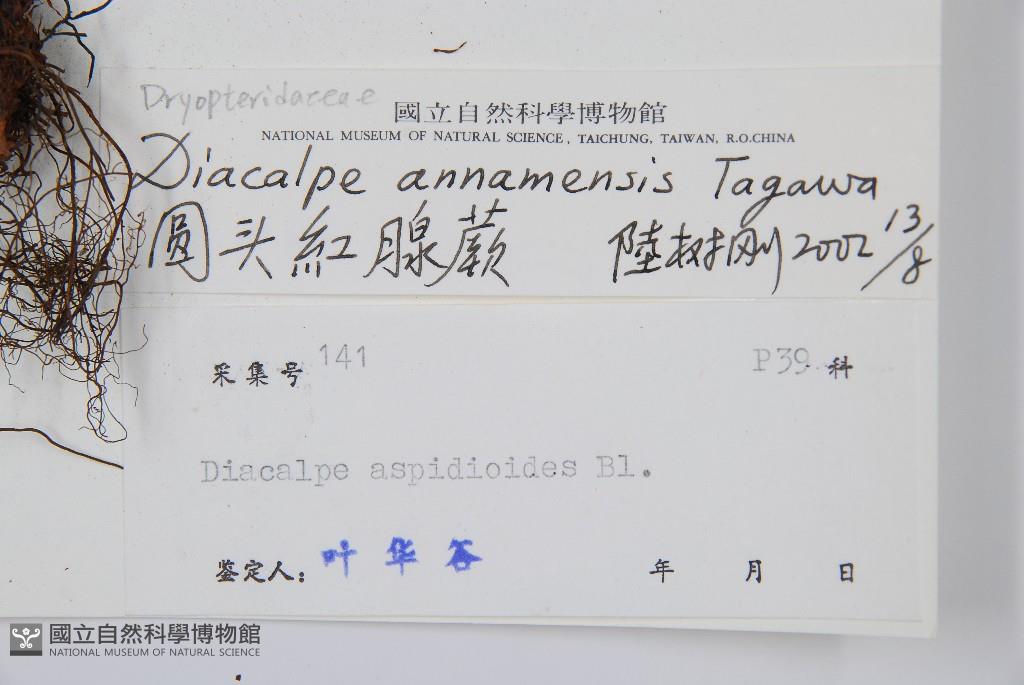 Dryopteridaceae
國立自然科學博物館
NATIONAL MUSEUM OF NATURAL SCIENCE, TAICHUNG, TAIWAN, R.O.CHINA
Diacalpe annamensis Tagawa
圓头紅腺蕨 陸树刚 2002 13/8
采集号 141 P39 科
Diacalpe aspidioides Bl.
鉴定人: 叶华谷 年 月 日
國立自然科學博物館
NATIONAL MUSEUM OF NATURAL SCIENCE